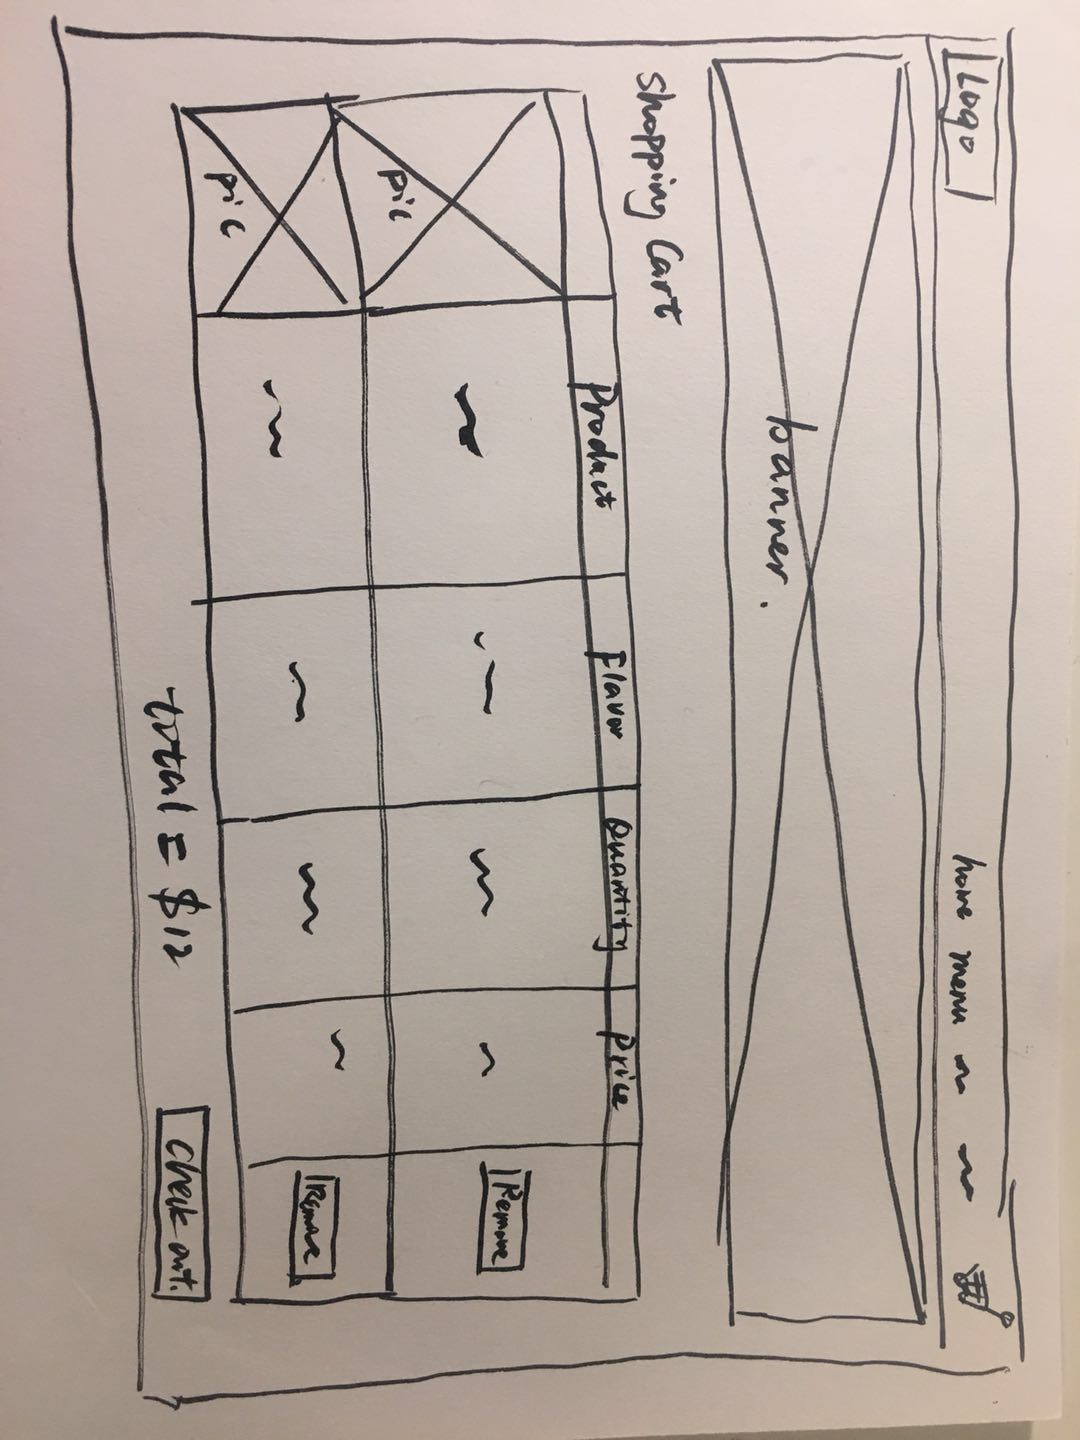 Logo
home menu
banner.
Shopping Cart
Product Flavor Quantity Price
pic Remove
pic Remove
total = $12 Check out.